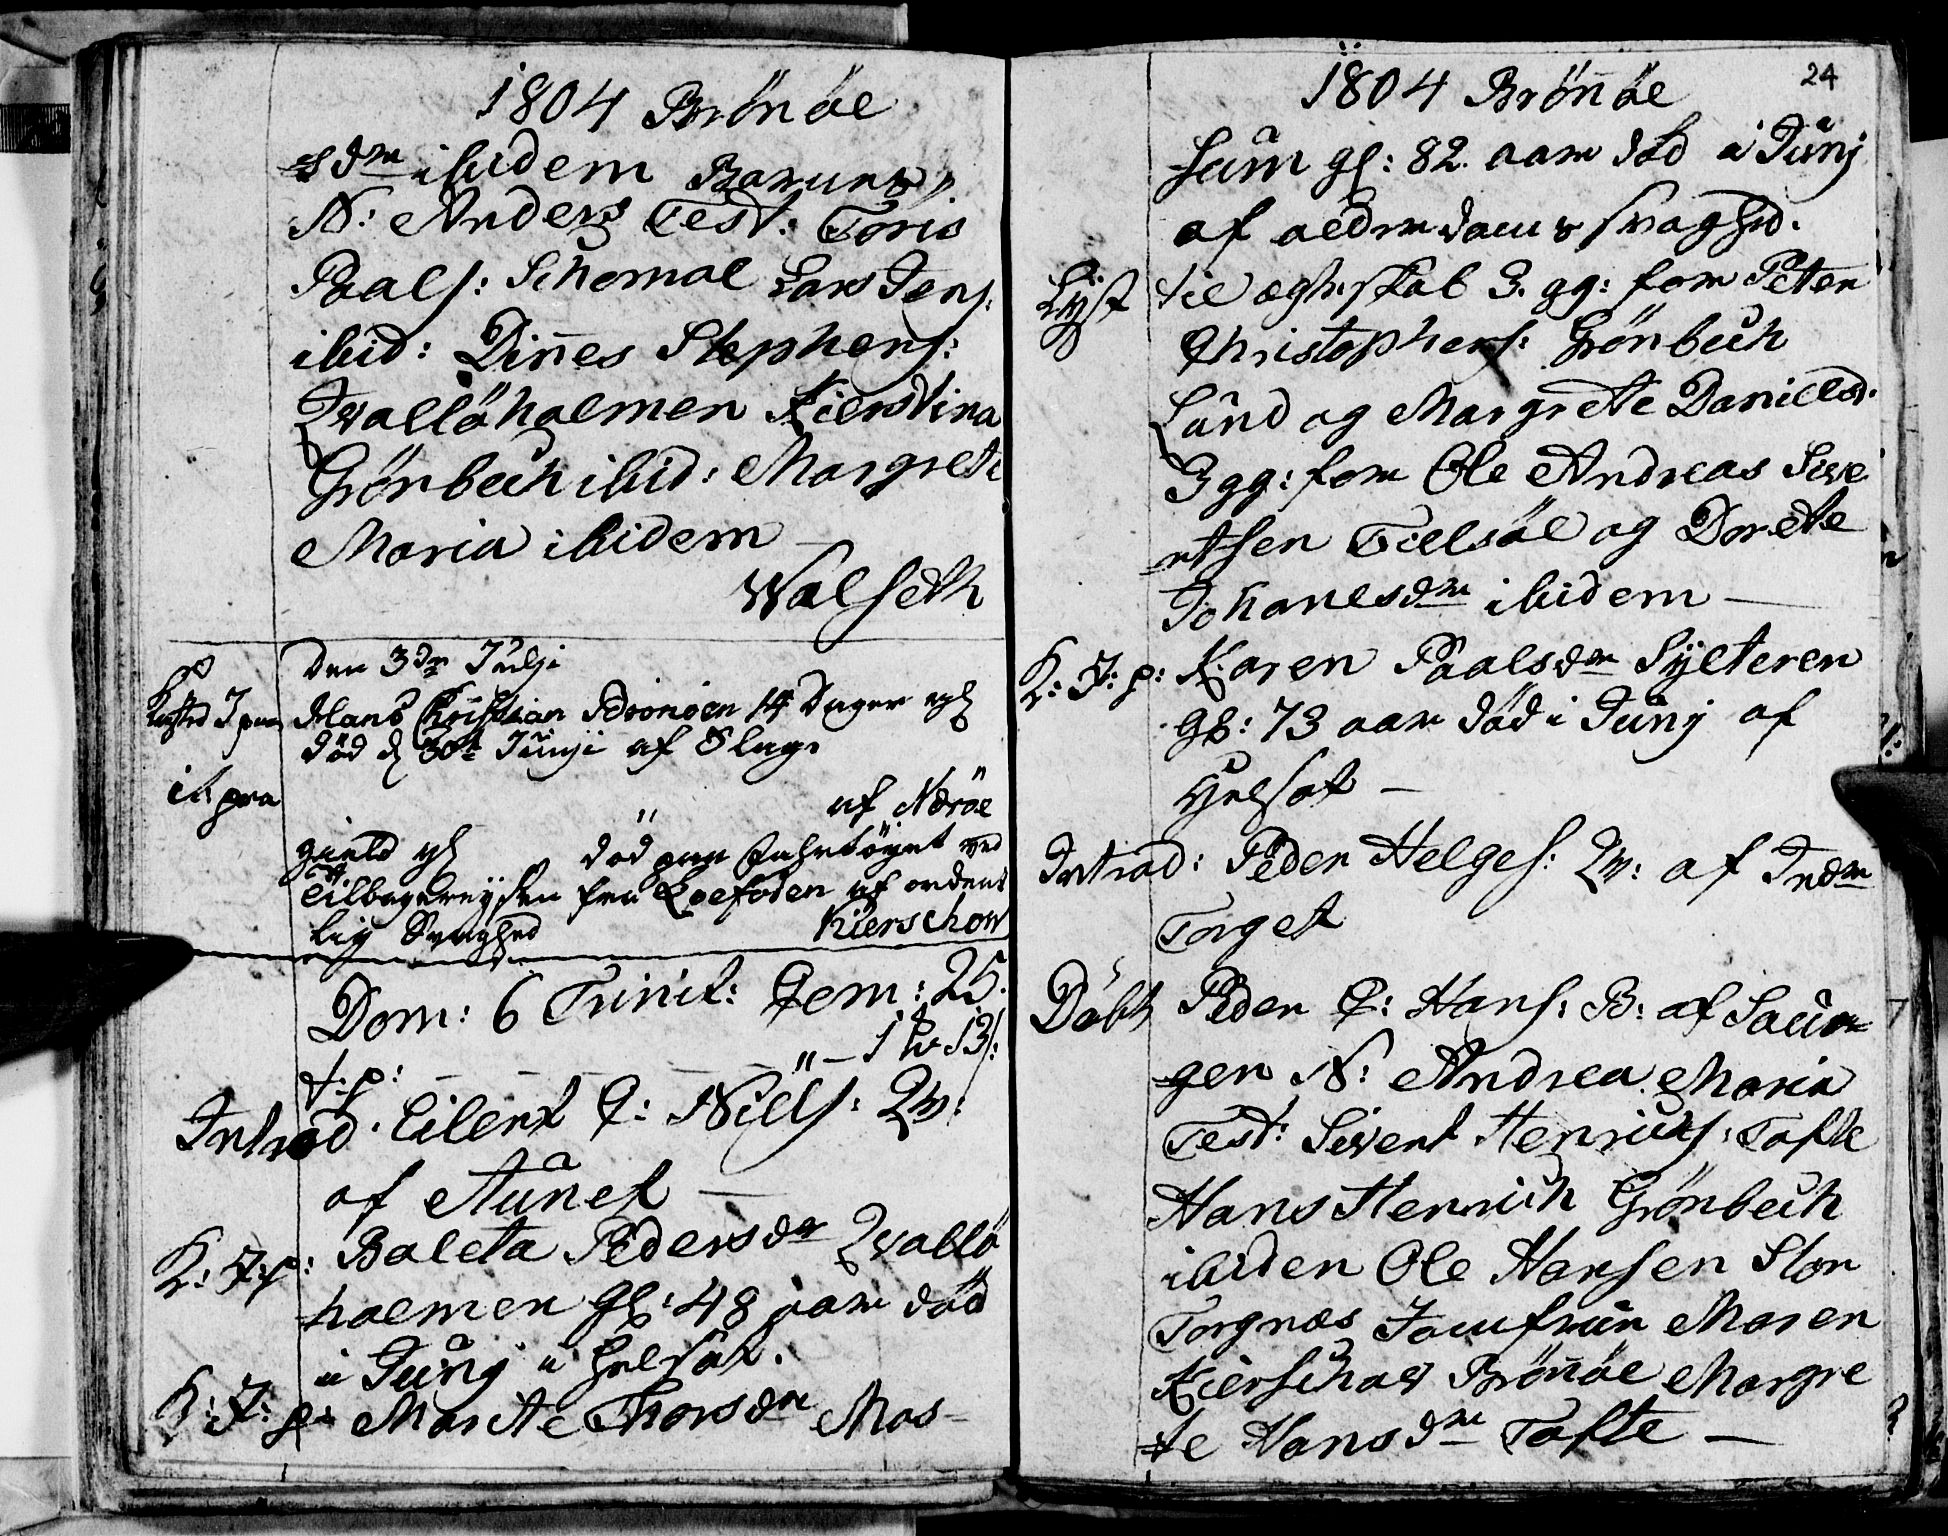 1804 Brönöe
sdr ibidem Barnets
N: Anders Test: Töris
Paals: Schomoe Lars Jens:
ibid: Diñes Stephens:
Qvalöholmen Kierstina
Grönbech ibid: Margrete
Maria ibidem
Walseth
den 3die Julji
Kasted J paa Hans Christian Brönöen 14 Dager gl
död d 30te Junji af Slag
it paa
af Næröe
gield gl död paa Fahrtöyet ved
Tilbagereysen fra Loefoden af ordent
lig Svaghed Kierschow
Dom: 6 Trinit: Com: 25.
t: p: — — — " — 1 13 s:
Introd. Eilert C: Niels: Qv:
af Aunet —
K: J: p: Baleta Pedersdr Qvalö
holmen gl: 48 aar död
i Junj i helsot.
K: J: p: Marite Thorsdr Mos-
1804 Brönöe 24
heim gl: 82 aar död i Junj
af alderdoms svaghed.
Lyst til ægteskab 3. gg: for Peter
Christophers: Grönbech
Lund og Margrete Danielsd.
3 gg: for Ole Andreas Sive
rtsen Tielsöe og Dorete
Johanesdr ibidem —
K: J: p: Karen Paalsdr Sylteren
gl: 73 aar död i Junj af
helsot —
Introd: Peder Helges: Qv: af Indre
Torget
Döbt Peder C: Hans: B: af Saur=
gen N: Andrea Maria
Test: Sivert Henrichs: Tofte
Hans Henrich Grönbech
ibiden Ole Hansen Stor
Torgnæs Jomfrue Maren
Kierschow Brönöe Margre
te Hansdr Tofte —